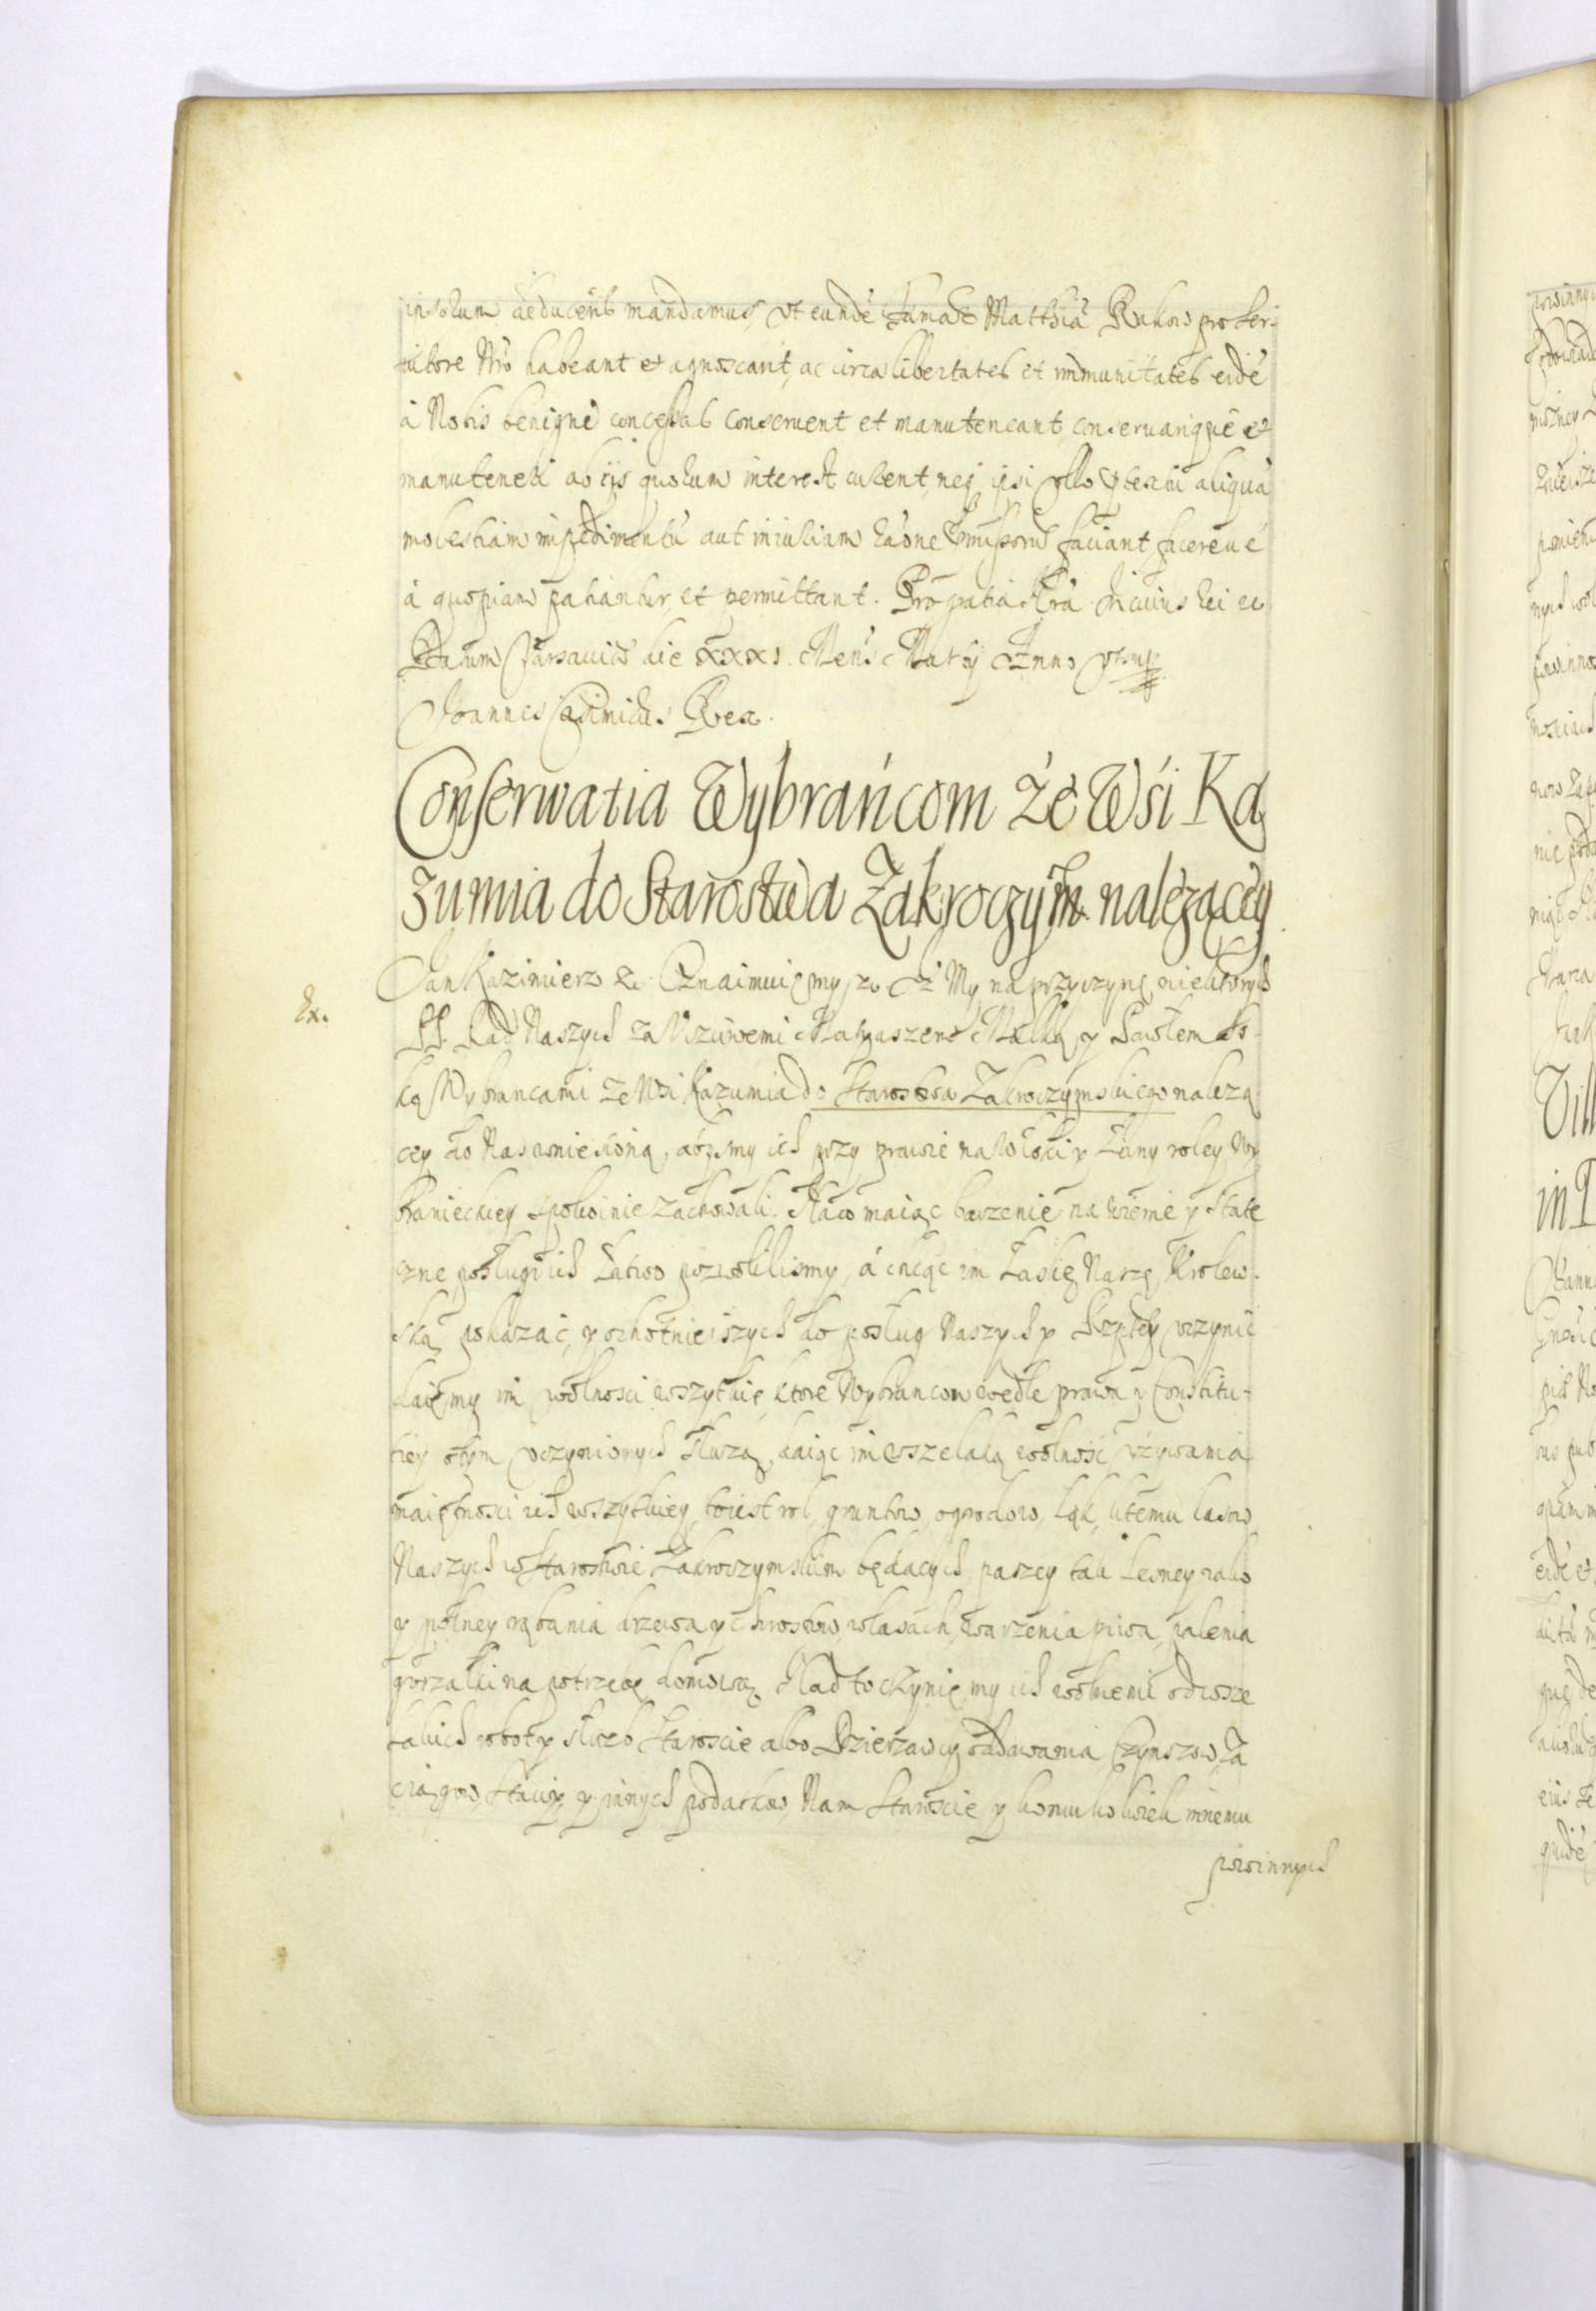 deducent mandamus, ut eunde Famat Matthia Bukow pro Ser-
uitore Nro habeant et agnoscant, ac circa libertates et immunitates eide
a Nobis benigne concessas conseruent et manuteneant, conseruarique et
manuteneri ab iis quorum interest curent, neq ipsi ullo aliqua
molestiam impedimentu aut iniuriam faciant, facereue
à quopiam patiantur, et permittant. Pro gratia Nra. In cuius rei etc
Datum Varsauiae die XXXI. Mens Martij Anno ut sup
Joannes Casimirus Rex.
Conserwatia Wybrańcom że Wśi Ka
zumia do Starostwa Zakroczym należącey
Jan Kazimierz &c. Oznaimuięmy, Iż My na przyczynę niektorych
PP. Rad Naszych za Vczciwemi Matyaszem y Pawłem
Wybrancami ze Wsi Kazumia do Starostwa Zakroczymskiego nalezą
cey do Nas wniesioną, abysmy ich przy prawie na Włoki y Łany roley Wy
branieckiey spokoinie zachowali. Na co maiąc baczenie na wierne y state
czne posługi ich łatwo pozwolilismy, á chcąc im Łaskę Naszę Krolew-
ską pokazać, y ochotnieiszych do posług Naszych y Rzptey vczynić
daięmy im wolnosci wszytkie, ktore Wybrancow wedle prawa y Constitu-
ciey o tym vczynionych służą, daiąc im wszelaką wolność vżywania
maiętnosci ich wszytkiey, to iest rol, gruntow, ogrodow, łąk, k temu lasow
Naszych w Starostwie Zakroczymskim będacych, paszey tak lesney iako
y polney rąbania drzewa y chrostow, w lasach, warzenia piwa, palenia
gorzałki na potrzebę domową. Nad to czynięmy ich wolnemi od wsze
lakich robot y służb Staroscie albo Dzierzawcy oddawania Czynszow, Za
ciągow, Stacyi y innych podatkow, Nam Staroscie y komukolwiek innemu
powinnych